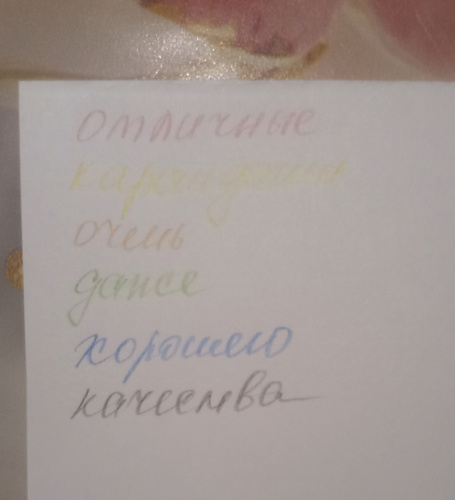 отличные
карандаши
очень
даже
хорошего
качества